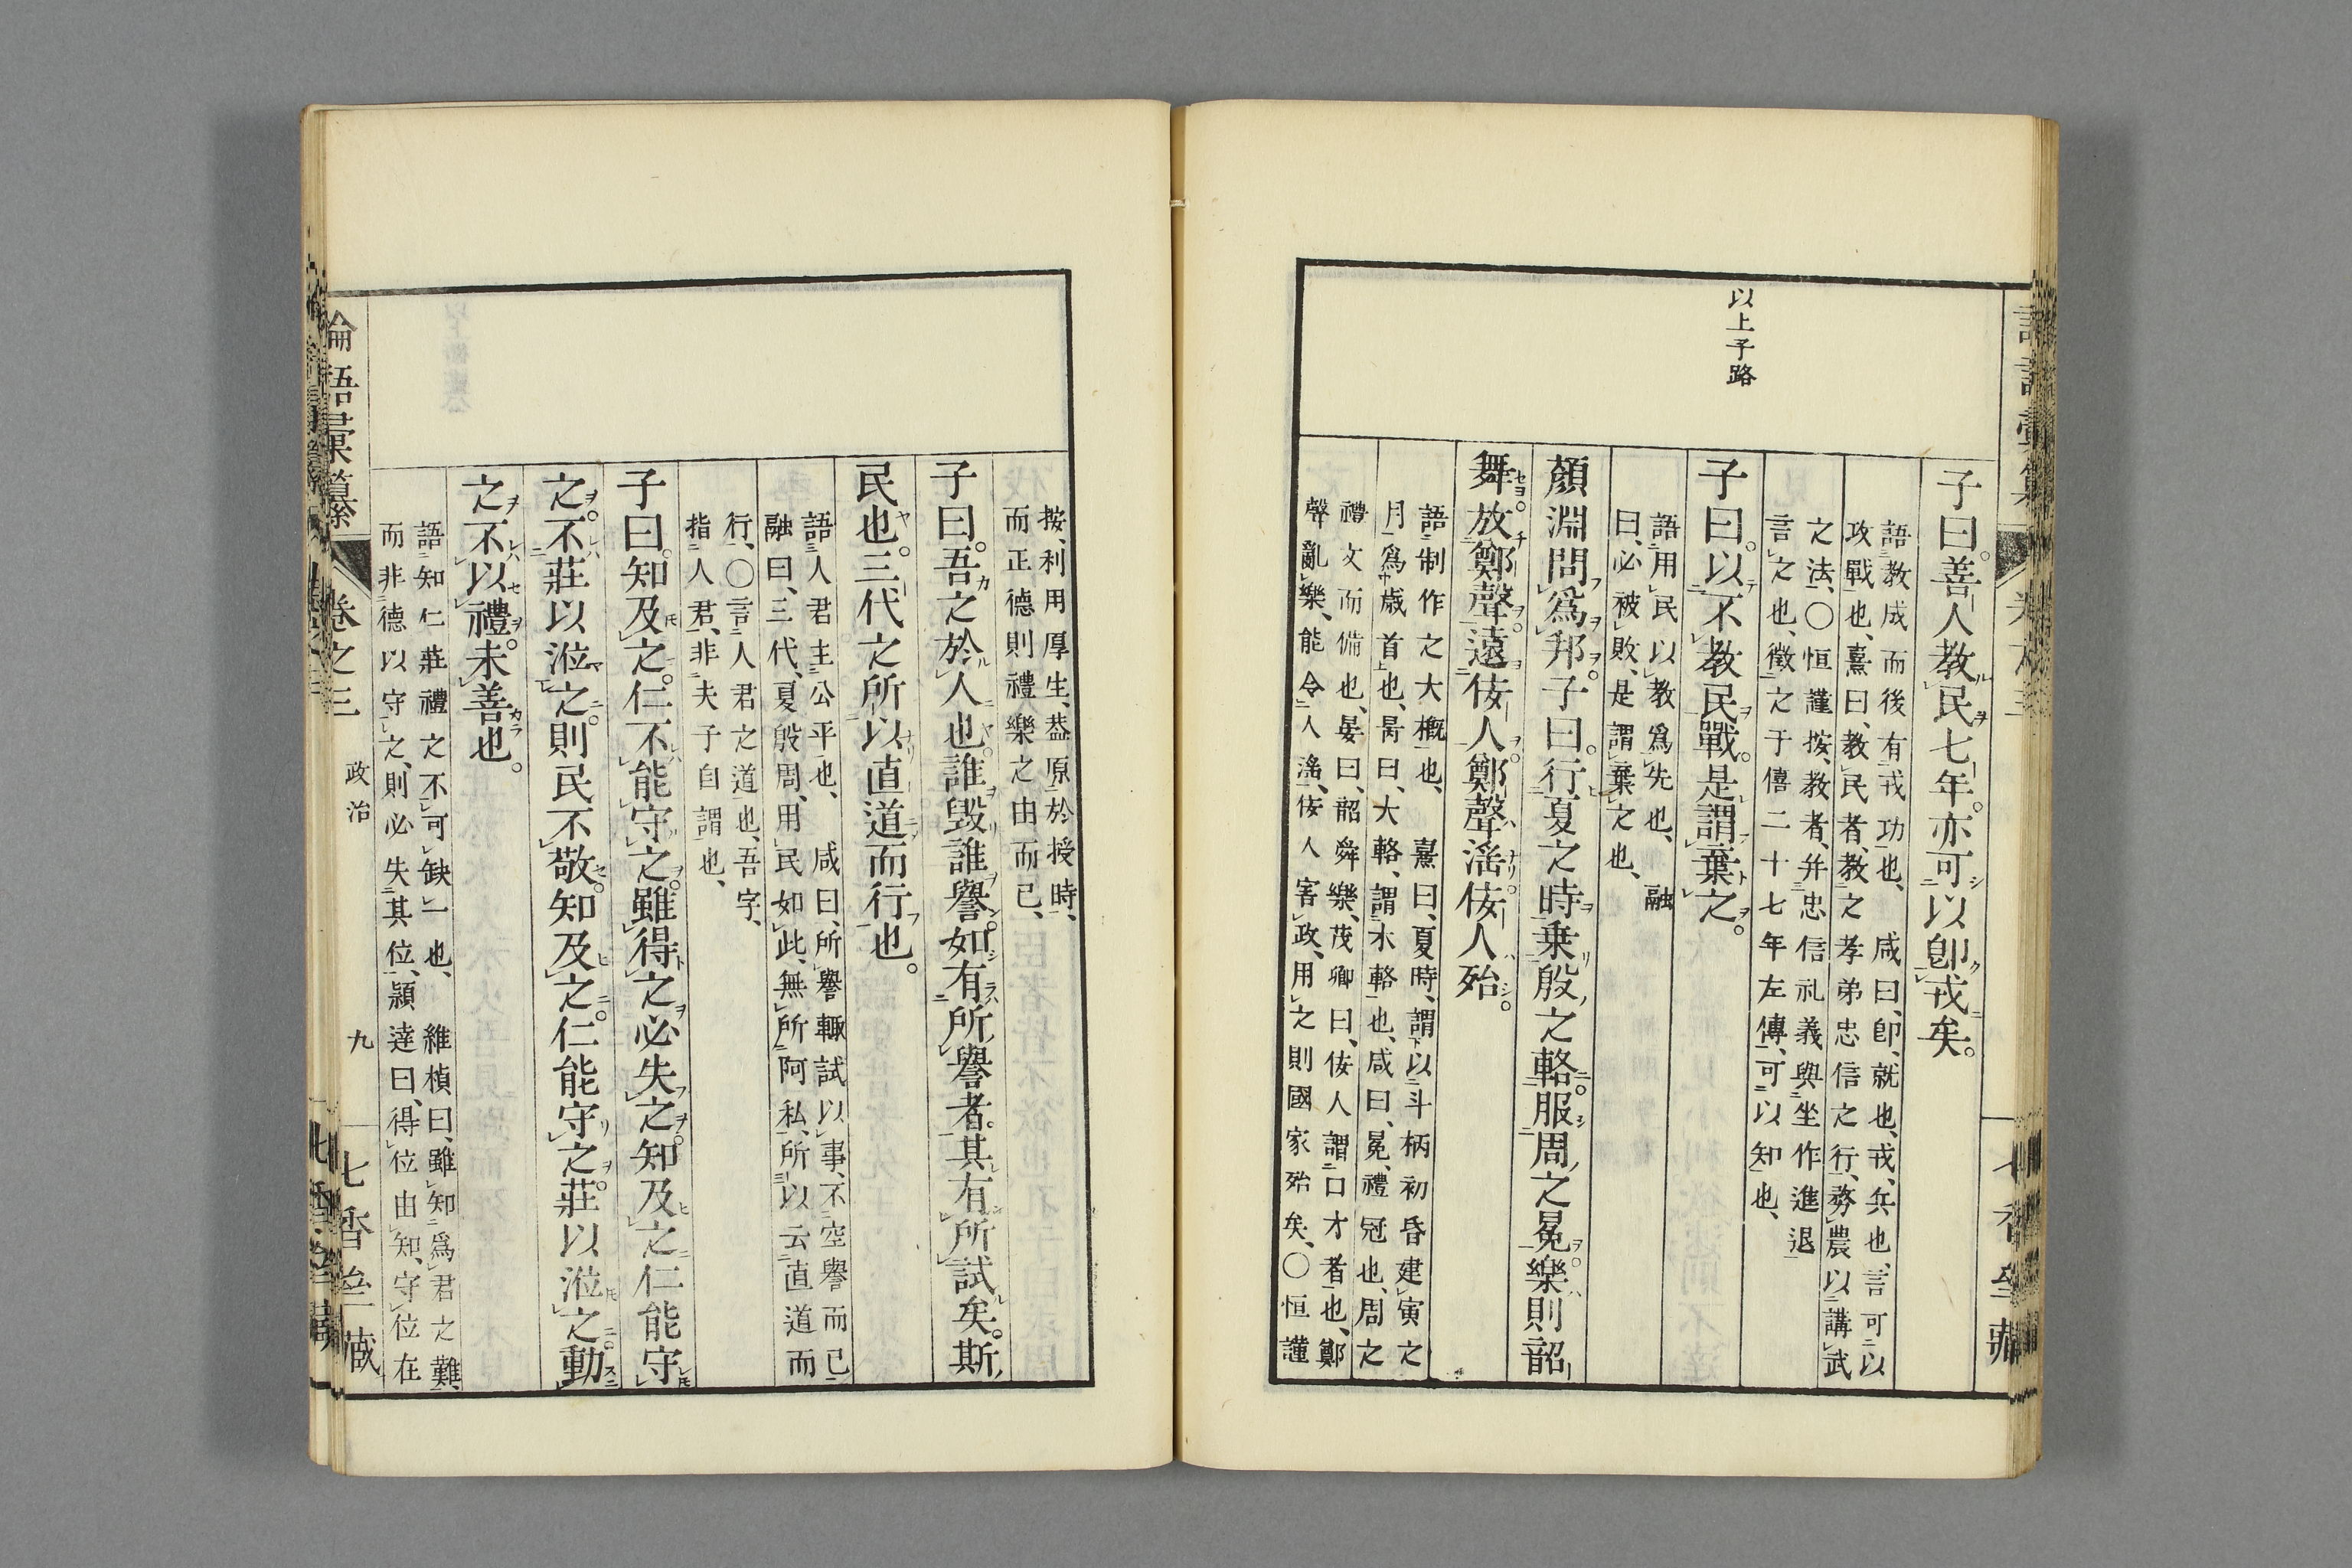 以上子路
子曰。善人教民七年。亦可以卽戎矣。
語教成而後有戎功也、咸曰、卽、就也、戎、兵也、言可以
攻戰也、熹曰、教民者、教之孝弟忠信之行、務農以講武
之法、○恒謹按、教者、幷忠信礼義與坐作進退
言之也、徵之于僖二十七年左傳、可以知也、
子曰。以不教民戰。是謂棄之。
語用民以教爲先也、融
曰、必被敗、是謂棄之也、
顏淵問爲邦。子曰。行夏之時。乘殷之輅。服周之冕。樂則韶
舞。放鄭聲。遠佞人。鄭聲淫。佞人殆。
語制作之大概也、熹曰、夏時、謂以斗柄初昏建寅之
月爲歲首也、昺曰、大輅、謂木輅也、咸曰、冕、禮冠也、周之
禮文而備也、晏曰、韶舜樂、茂卿曰、佞人謂口才者也、鄭
聲亂樂、能令人淫、佞人害政、用之則國家殆矣、○恒謹
按、利用厚生、蓋原於授時、
而正德則禮樂之由而已、
子曰。吾之於人也。誰毀誰譽。如有所譽者。其有所試矣。斯
民也。三代之所以直道而行也。
語人君主公平也、咸曰、所譽輒試以事、不空譽而已
融曰、三代、夏殷周、用民如此、無所阿私、所以云直道而
行、○言人君之道也、吾字、
指人君、非夫子自謂也、
子曰。知及之。仁不能守之。雖得之必失之。知及之仁能守
之。不莊以涖之。則民不敬。知及之。仁能守之。莊以涖之。動
之不以禮。未善也。
語知仁莊禮之不可缺一也、維楨曰、雖知爲君之難、
而非德以守之、則必失其位、穎達曰、得位由知、守位在
論語彙纂 卷之三 政治 九 七香齋藏